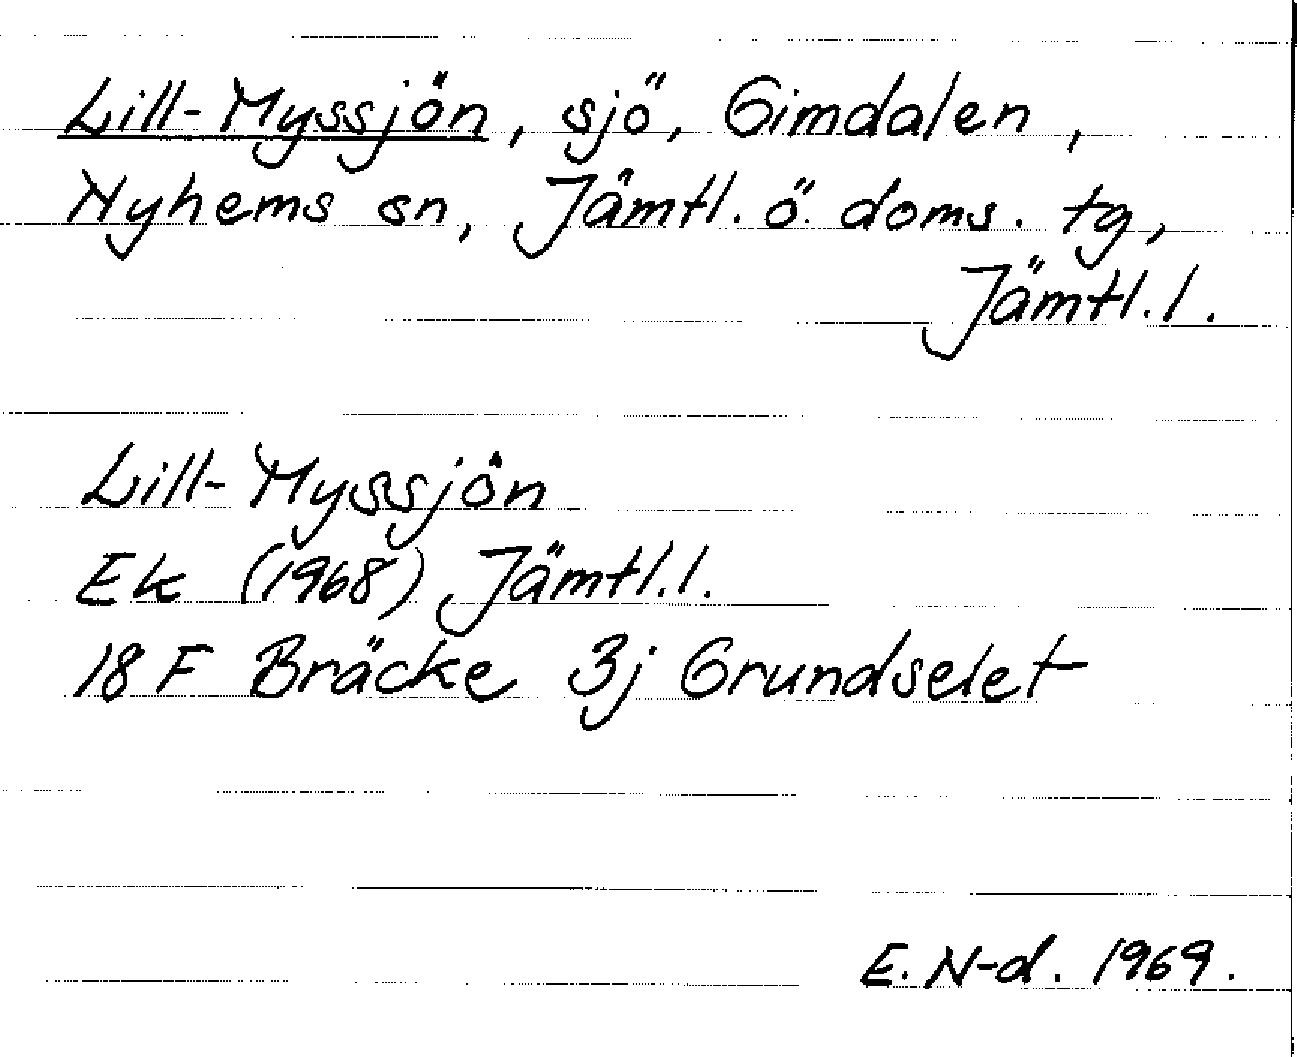 Lill-Myssjön, sjö, Gimdalen,
Nyhems sn, Jämtl. ö. doms. tg,
Jämtl. l.
Lill-Myssjön
Ek (1968) Jämtl. l.
18 F Bräcke 3j Grundselet
E. N-d. 1969.